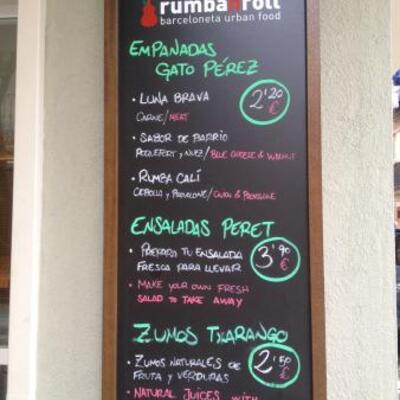 rumbanroll
barceloneta urban food
EMPANADAS
GATO PÉREZ
• LUNA BRAVA
CARNE/MEAT
2'20
€
• SABOR DE BARRIO
ROQUEFORT y NUEZ/BLUE CHEESE & WALNUT
• RUMBA CALÍ
CEBOLLA y PROVOLONE/ONION & PROVOLONE
ENSALADAS PERET
• PREPARA TU ENSALADA
FRESCA PARA LLEVAR
3'90
€
• MAKE YOUR OWN FRESH
SALAD TO TAKE AWAY
ZUMOS TXARANGO
• ZUMOS NATURALES DE
FRUTA Y VERDURAS
2'50
€
• NATURAL JUICES WITH